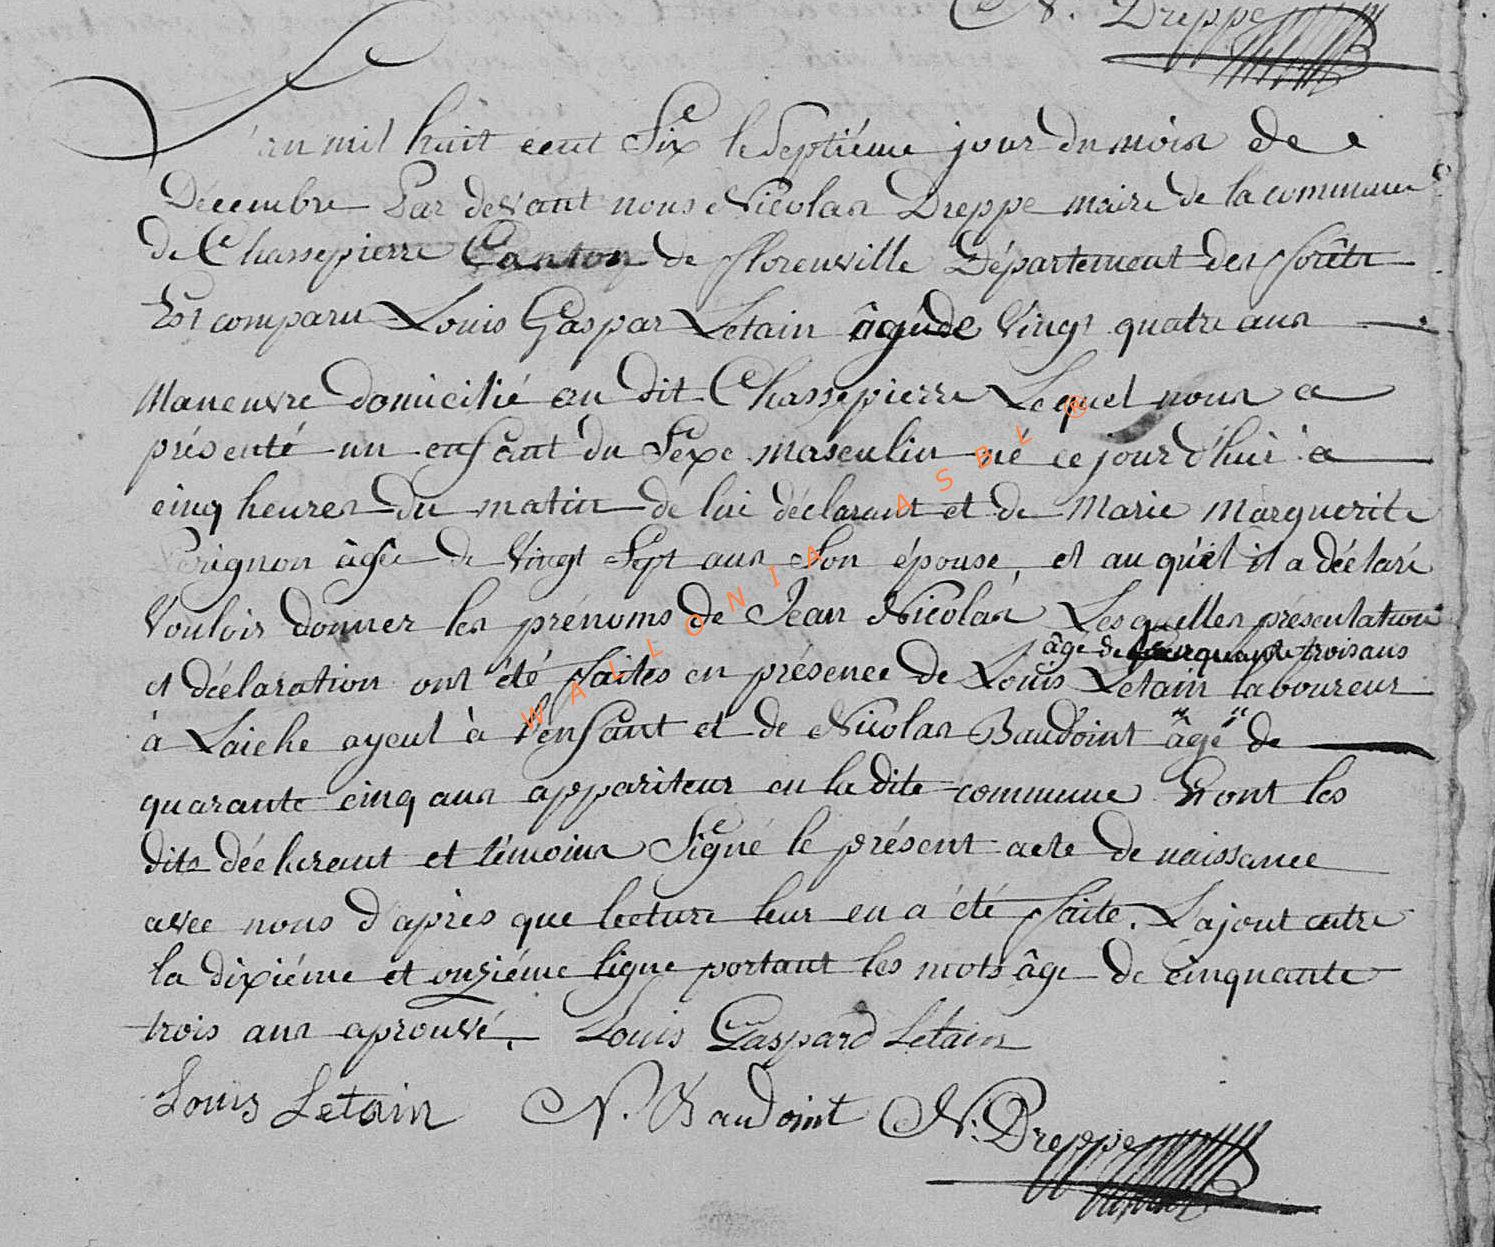 N. Dreppe
L'an mil huit cent Six le Septiéme jour du mois de
Décembre Par devant nous Nicolas Dreppe maire de la commune
de Chassepierre Canton de Florenville Département des forêts
Est comparu Louis Gaspar Letain âgé de Vingt quatre ans
Maneuvre domicilié au dit Chassepierre Lequel nous a
présenté un enfant du Sexe masculin né ce jourd'hui a
cinq heures du matin de lui déclarant et de Marie Marguerite
Perignon âgée de Vingt Sept ans Son épouse, et au quel il a déclaré
Vouloir donner les prénoms de Jean Nicolas Lesquelles présentation
âge de cinquante trois ans
et déclaration ont été faites en présence de Louis Letain laboureur
à Laiche ayeul à l'enfant et de Nicolas Baudoint âgé de
quarante cinq ans appariteur en la dite commune Et ont les
dits déclarant et témoins Signé le présent acte de naissance
avec nous d'après que lecture leur en a été faite. L'ajout entre
la dixiéme et onziéme ligne portant les mots âge de cinquante
trois ans aprouvé. Louis Gaspard Letain
Louis Letain N. Baudoint N. Dreppe
WALLONIA ASBL ®